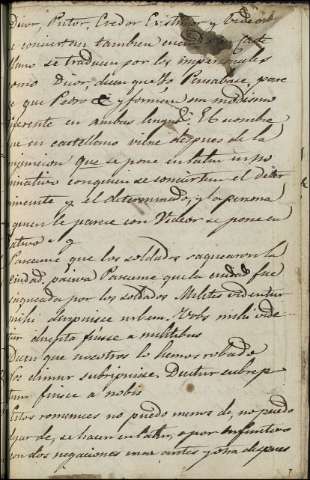 Dicor, Putor, Credor Existimor y Videor
se conviertan tambien en
llano se traducen por los impersonales
como Dicor, dicen que yo Pensabase, pare
ce que Pedro &c y forman un modismo
diferente en ambas lenguas: El nombre
que en castellano viene despues de la
que se pone en latin en no
minativo con quien se concierta el deter
minante y el determinado, y la persona
a quien le parece con Videor se pone en
dativo
Pareceme que los soldados saquearon la
ciudad, pasiva Pareceme que la ciudad fue
saqueada por los soldados Milites videntur
mihi diripuisse urbem. Urbs mihi vide
tur direpta fuisse a militibus
Dicen que nosotros lo hemos robado
Nos dicimur subripuisse. Dicitur
tum fuisse a nobis
Estos romances no puedo menos de, no puedo
dejar de, se hacen en latin, o por infinitivo
con dos negaciones una antes y otra despues